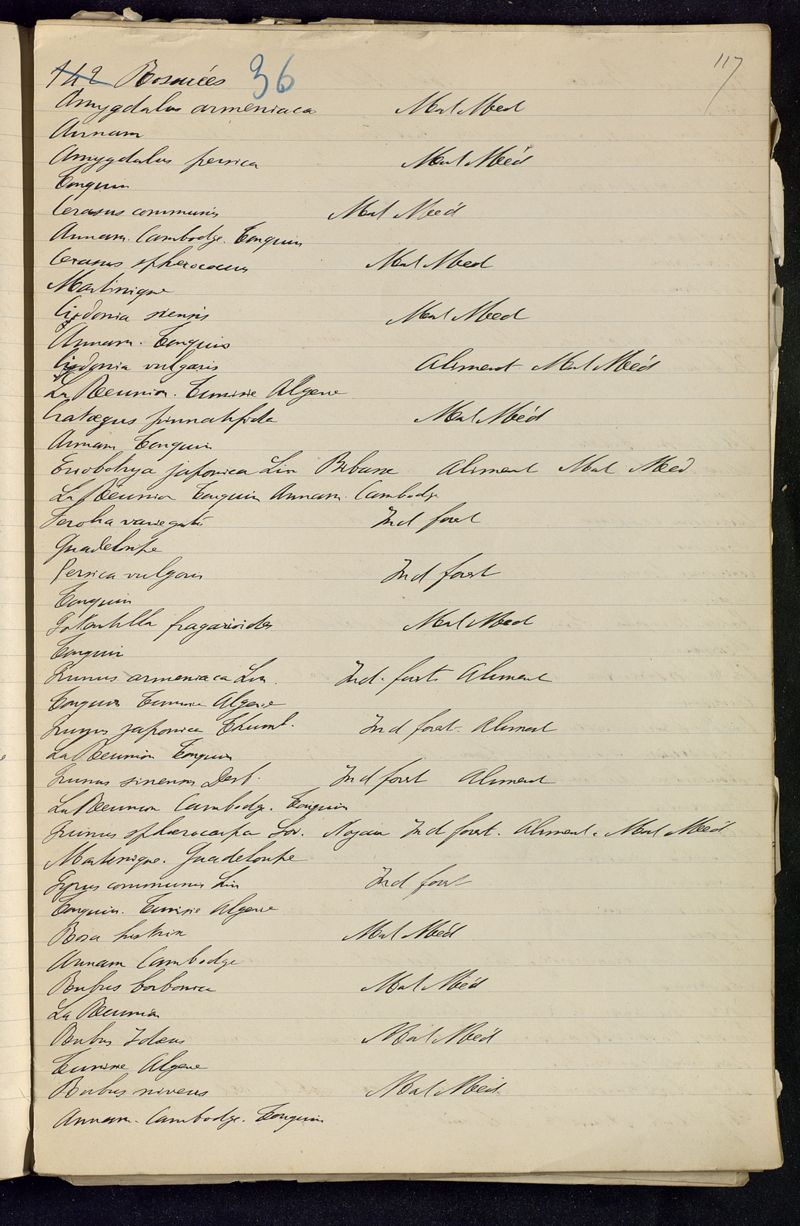 117
142 Rosacées 36
Amygdalus armeniaca Mat Med
Annam
Amygdalus persica Mat Méd
Tonquin
Cerasus communis Mat Méd
Annam. Cambodge. Tonquin
Cerasus spherocarus Mat Med
Martinique
Cydonia sinensis Mat Méd
Annam. Tonquin
Cydonia vulgaris Aliment Mat Méd
La Réunion. Tunisie Algerie
Crataegus pinnatifida Mat Méd
Annam Tonquin
Eriobotrya japonica Lin Bibasse Aliment Mat Med
La Réunion Tonquin Annam. Cambodge
Ferolia variegata Ind forest
Guadeloupe
Persica vulgaris Ind forest
Tonquin
Potentilla fragarioides Mat Med
Tonquin
Prunus armeniaca Lin. Ind. forest Aliment
Tonquin Tunisie Algerie
Prunus japonica Thumb. Ind forest. Aliment
La Réunion Tonquin
Prunus sinensis Desf. Ind forest Aliment
La Réunion Cambodge. Tonquin
Prunus sphaerocarpa Noyau Ind forest. Aliment. Mat Méd
Martinique. Guadeloupe
Pyrus communis Lin Ind forest
Tonquin. Tunisie Algerie
Rosa Mat Méd
Annam Cambodge
Rubus borbonica Mat Méd
La Réunion
Rubus Idaeus Mat Méd
Tunisie Algerie
Rubus niveus Mat Méd.
Annam. Cambodge. Tonquin